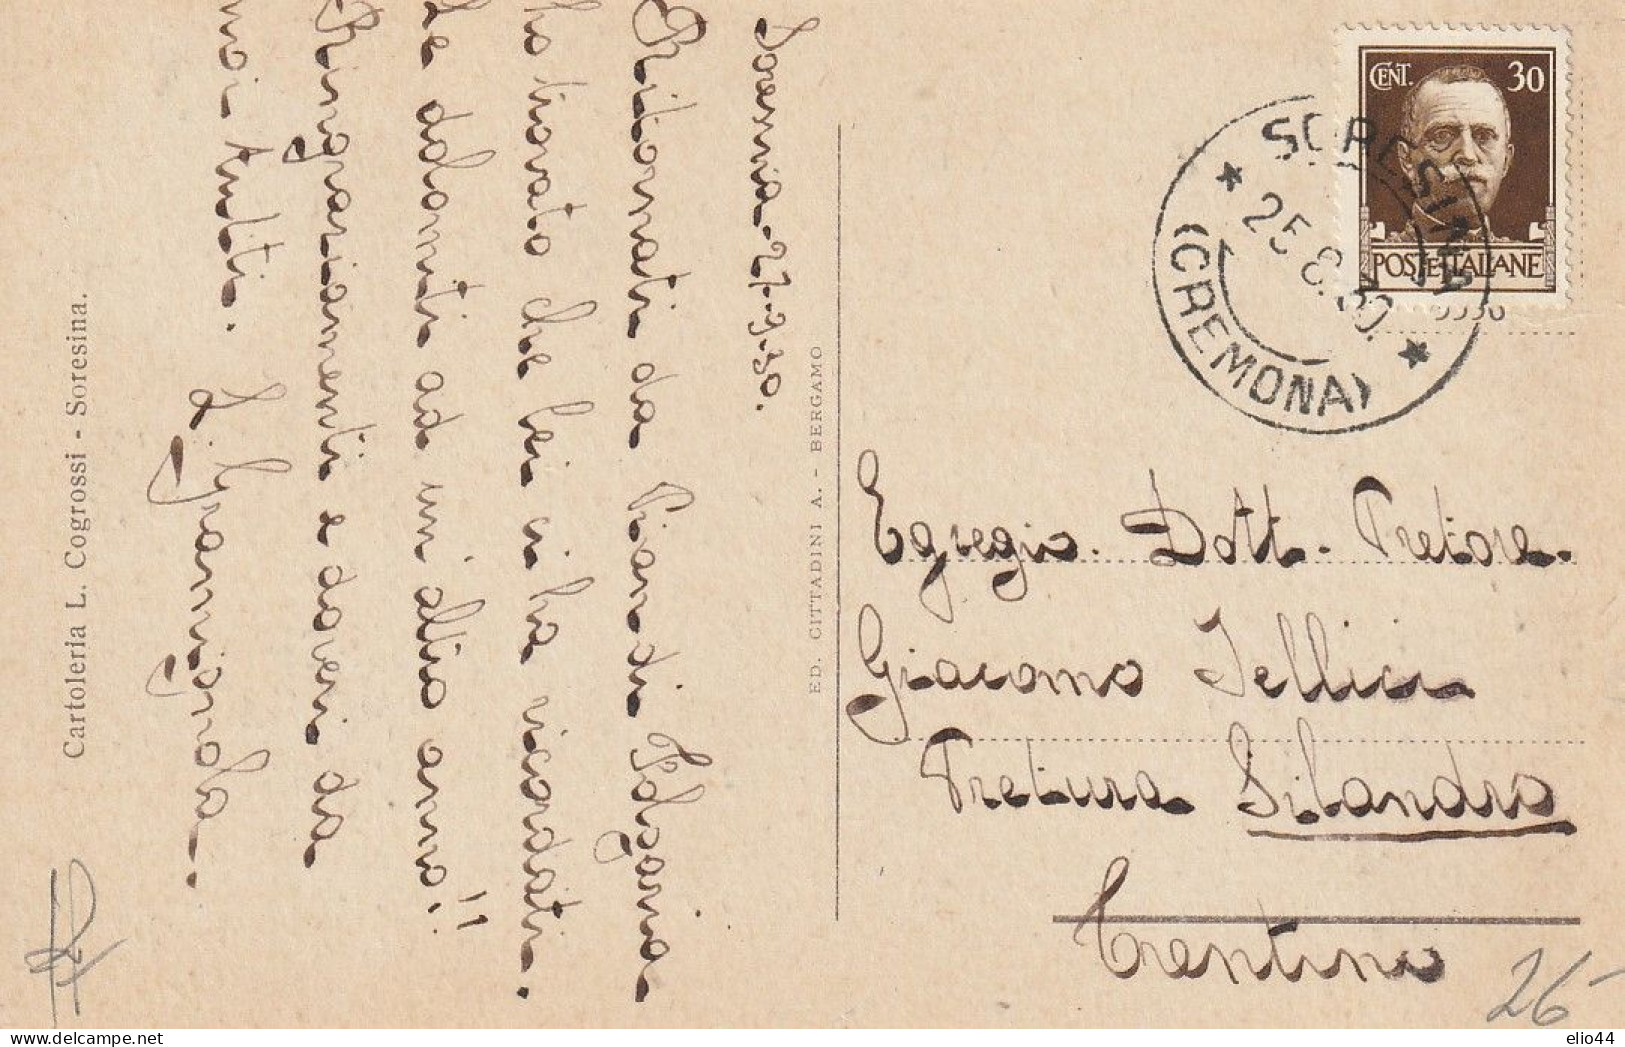 Soresina - 27.9.30.
Ritornati da Pian di Fdgaria
ho trovato che lei ci ha ricordati.
Le dolomiti ad un'altro anno!!
Ringraziamenti e doveri da
noi tutti. L. Grammignola.
Cartoleria L. Cogrossi - Soresina.
ED. CITTADINI A. - BERGAMO
CENT. 30
POSTE ITALIANE
SORESINA
(CREMONA)
25.8.30.
Egregio. Dott. Pretore.
Giacomo Jellici
Pretura Silandro
Trentino
26-
elio44